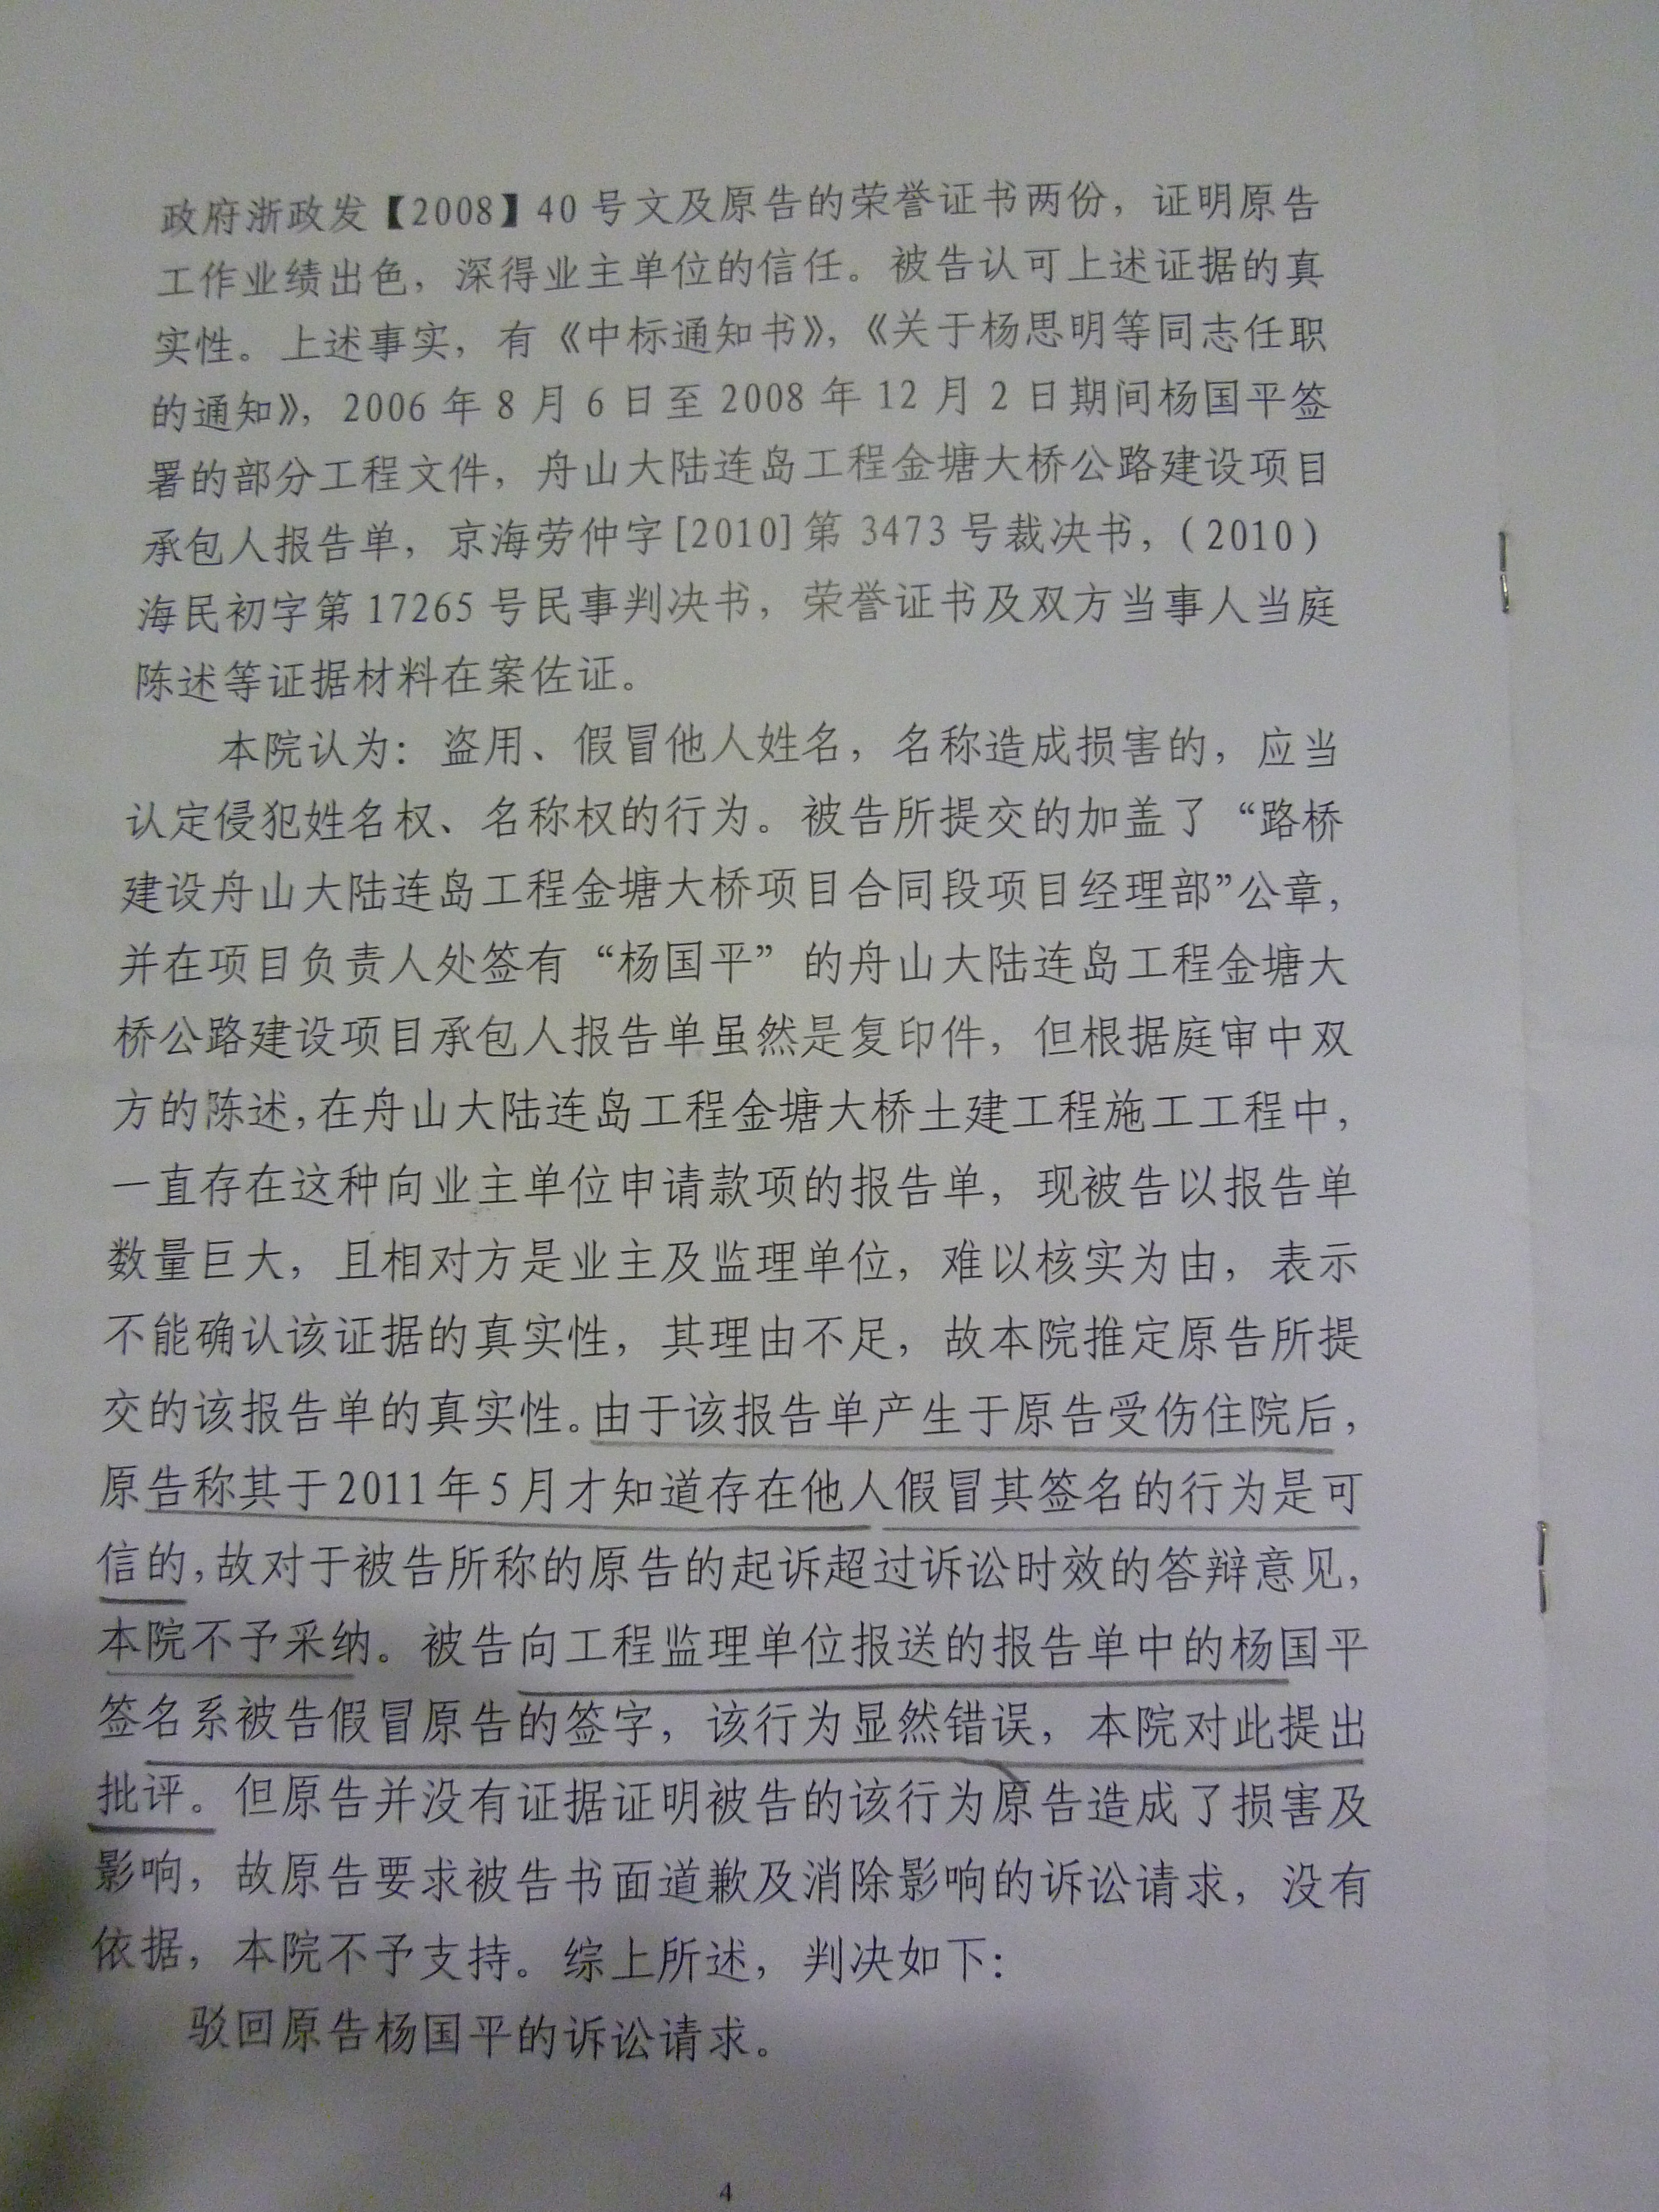 政府浙政发【2008】40号文及原告的荣誉证书两份，证明原告
工作业绩出色，深得业主单位的信任。被告认可上述证据的真
实性。上述事实，有《中标通知书》，《关于杨思明等同志任职
的通知》，2006年8月6日至2008年12月2日期间杨国平签
署的部分工程文件，舟山大陆连岛工程金塘大桥公路建设项目
承包人报告单，京海劳仲字[2010]第3473号裁决书，（2010）
海民初字第17265号民事判决书，荣誉证书及双方当事人当庭
陈述等证据材料在案佐证。
本院认为：盗用、假冒他人姓名，名称造成损害的，应当
认定侵犯姓名权、名称权的行为。被告所提交的加盖了“路桥
建设舟山大陆连岛工程金塘大桥项目合同段项目经理部”公章，
并在项目负责人处签有“杨国平”的舟山大陆连岛工程金塘大
桥公路建设项目承包人报告单虽然是复印件，但根据庭审中双
方的陈述，在舟山大陆连岛工程金塘大桥土建工程施工工程中，
一直存在这种向业主单位申请款项的报告单，现被告以报告单
数量巨大，且相对方是业主及监理单位，难以核实为由，表示
不能确认该证据的真实性，其理由不足，故本院推定原告所提
交的该报告单的真实性。由于该报告单产生于原告受伤住院后，
原告称其于2011年5月才知道存在他人假冒其签名的行为是可
信的，故对于被告所称的原告的起诉超过诉讼时效的答辩意见，
本院不予采纳。被告向工程监理单位报送的报告单中的杨国平
签名系被告假冒原告的签字，该行为显然错误，本院对此提出
批评。但原告并没有证据证明被告的该行为原告造成了损害及
影响，故原告要求被告书面道歉及消除影响的诉讼请求，没有
依据，本院不予支持。综上所述，判决如下：
驳回原告杨国平的诉讼请求。
4